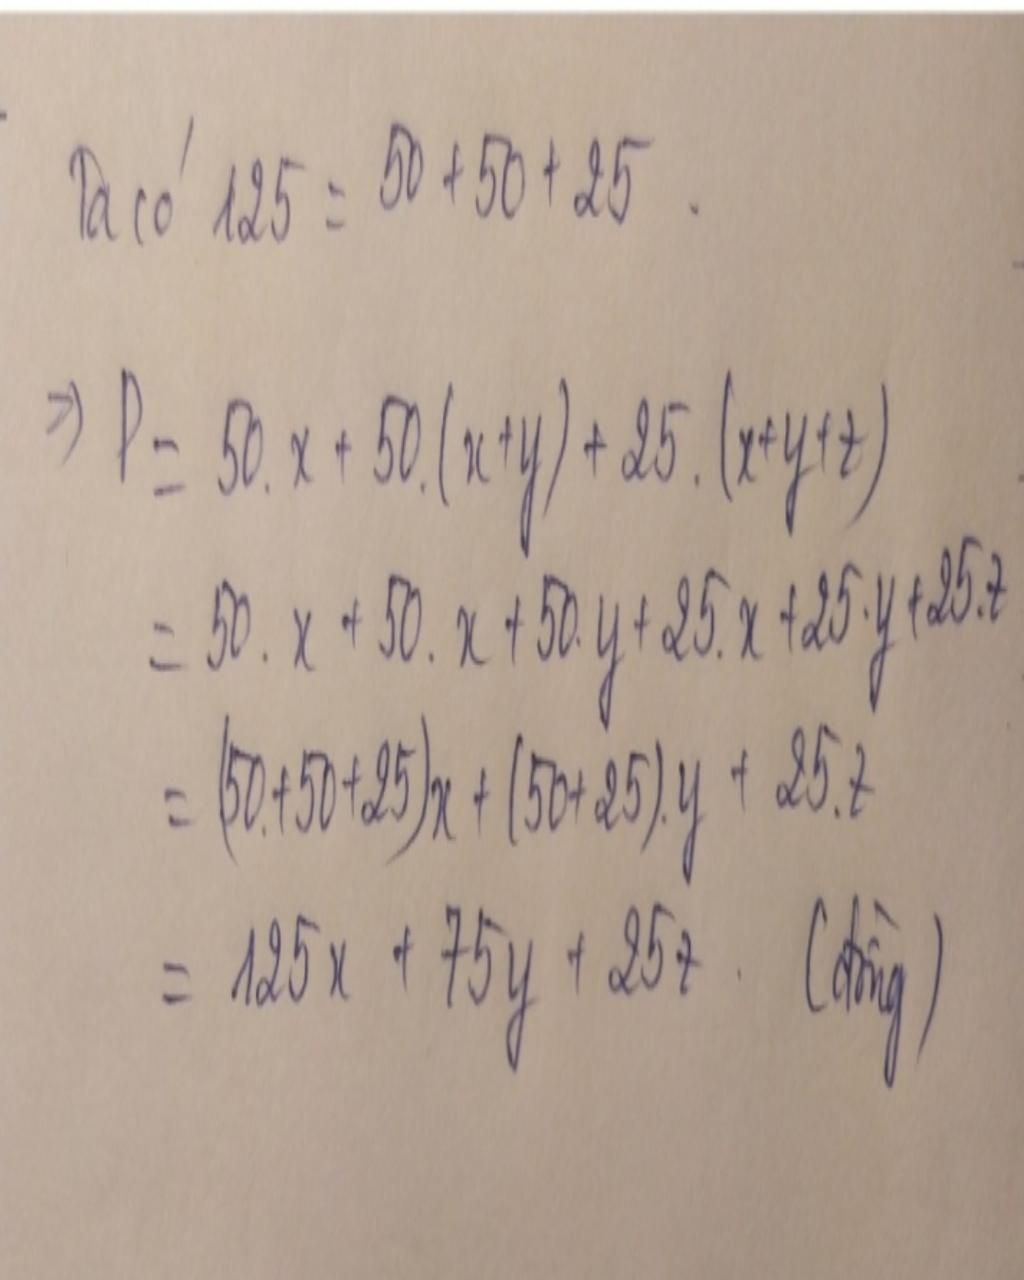 Ta có 125 = 50 + 50 + 25 .
=> P = 50. x + 50.(x+y) + 25. (x+y+z)
= 50. x + 50. x + 50.y + 25.x + 25.y + 25.z
= (50.+50+25)x + (50+25).y + 25.z
= 125x + 75y + 25z . (đồng)